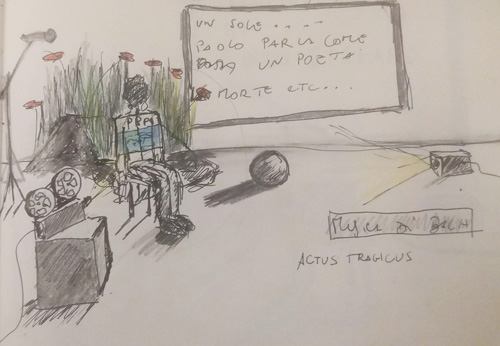 UN SOLE . . . . .
PAOLO PARLA COME
UN POETA
MORTE ETC...
Musica DI BACH
ACTUS TRAGICUS